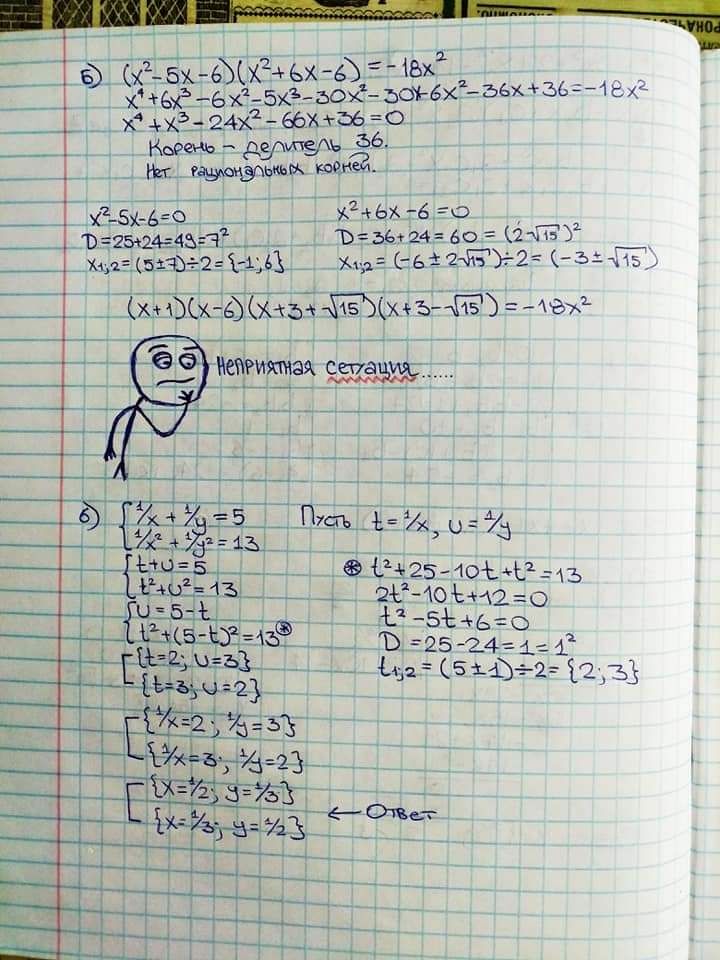 РОКАЧЕСТ
ОКОНОМНО.
б) (x²-5x-6)(x²+6x-6)=-18x²
x⁴+6x³-6x²-5x³-30x²-30x-6x²-36x+36=-18x²
x⁴+x³-24x²-66x+36=0
Корень - делитель 36.
Нет рациональных корней.
x²-5x-6=0
D=25+24=49=7²
x₁;₂=(5±7)÷2={-1;6}
x²+6x-6=0
D=36+24=60=(2√15)²
x₁;₂=(-6±2√15)÷2=(-3±√15)
(x+1)(x-6)(x+3+√15)(x+3-√15)=-18x²
Неприятная сетуация......
б) {1/x+1/y=5
{1/x²+1/y²=13
{t+u=5
{t²+u²=13
{u=5-t
{t²+(5-t)²=13⊛
[{t=2; u=3}
[{t=3; u=2}
[{1/x=2; 1/y=3}
[{1/x=3; 1/y=2}
[{x=1/2; y=1/3}
[{x=1/3; y=1/2} ← Ответ
Пусть t=1/x, u=1/y
⊛ t²+25-10t+t²=13
2t²-10t+12=0
t²-5t+6=0
D=25-24=1=1²
t₁;₂=(5±1)÷2={2;3}